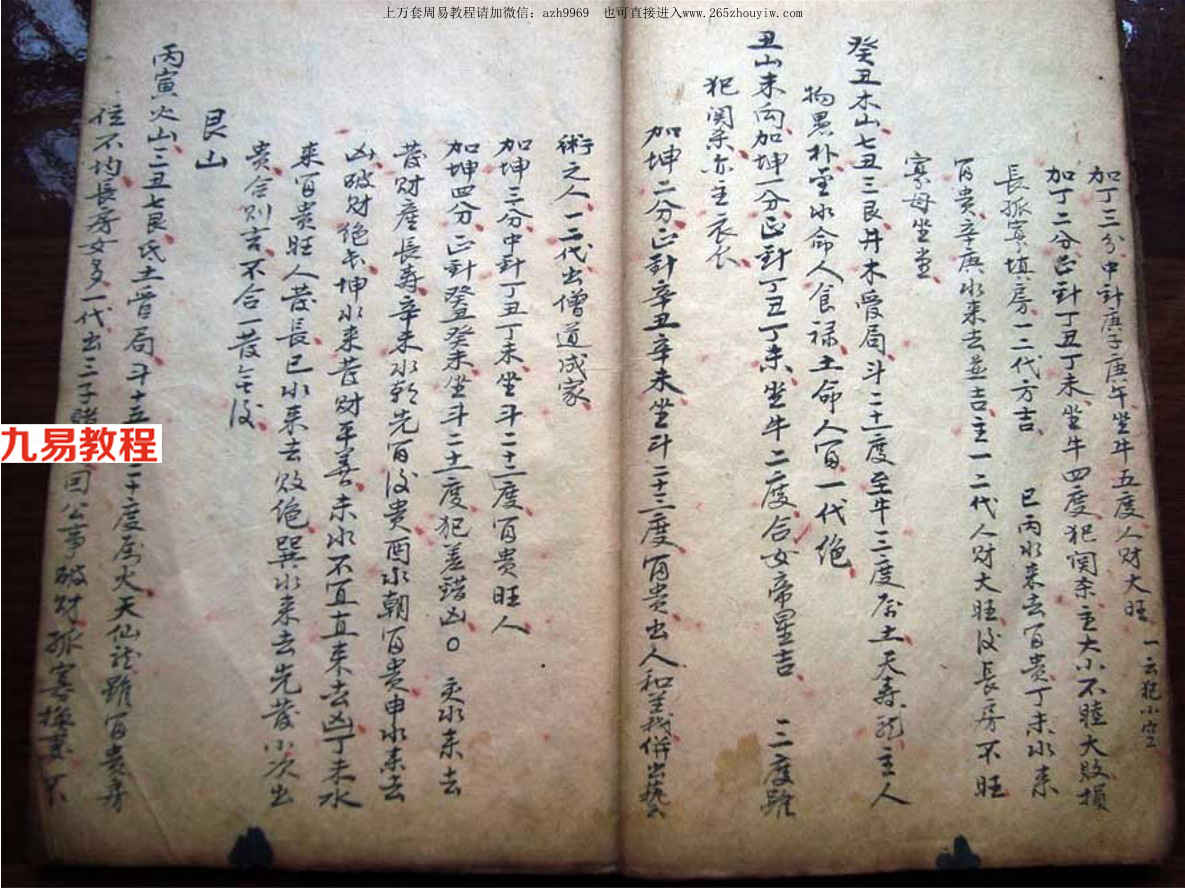 上万套周易教程请加微信：azh9969　也可直接进入www.265zhouyiw.com
加丁三分中針庚子庚午坐牛五度人财大旺 一云犯小空
加丁二分正針丁丑丁未坐牛四度犯関煞主大小不睦大敗損
長孤寡填房一二代方吉 巳丙水来去富貴丁未水来
富貴辛庚水来去並吉主一二代人财大旺後長房不旺
寡母坐堂
癸丑木山七丑三艮井木受局斗二十一度至牛三度属土天寿龍主人
物愚朴至水命人食禄土命人富一代绝
丑山未向加坤一分正針丁丑丁未坐牛二度合女帝星吉 二度雖
犯関煞亦主衣食
加坤二分正針辛丑辛未坐斗二十三度富貴出人和並機俱出藝
術之人一二代出僧道成家
加坤三分中針丁丑丁未坐斗二十二度富貴旺人
加坤四分正針癸丑癸未坐斗二十一度犯差錯凶〇 艮水来去
發财產長寿辛来水朝先富後貴酉水朝富貴申水来去
凶破财绝坤水来發财平善未水不宜直来去凶丁未水
来富貴旺人發長巳水来去敗绝巽水来去先發小次出
貴合則吉不合一發無後
艮山
丙寅火山三丑七艮氐土晉局斗十五度二十度属火天仙龍雖富貴房
位不均長房女多一代出三子賭回公事破财孤寡换妻不
九易教程